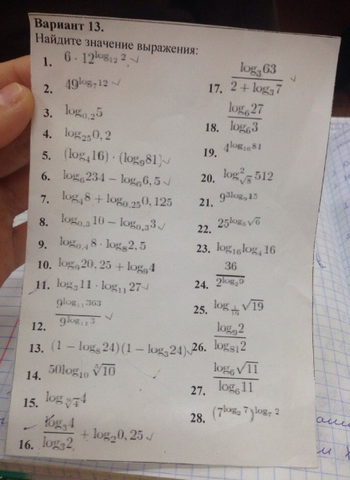 Вариант 13.
Найдите значение выражения:
1. 6 · 12^{log_{12} 2}
2. 49^{log_7 12}
3. log_{0,2} 5
4. log_{25} 0,2
5. (log_4 16) · (log_9 81)
6. log_6 234 − log_6 6,5
7. log_4 8 + log_{0,25} 0,125
8. log_{0,3} 10 − log_{0,3} 3
9. log_{0,4} 8 · log_8 2,5
10. log_9 20,25 + log_9 4
11. log_3 11 · log_{11} 27
12. 9^{log_{11} 363} / 9^{log_{11} 3}
13. (1 − log_8 24)(1 − log_3 24)
14. 50 log_{10} \sqrt[5]{10}
15. log_{\sqrt[7]{4}} 4
16. log_3 4 / log_3 2 + log_2 0,25
17. log_3 63 / (2 + log_3 7)
18. log_6 27 / log_6 3
19. 4^{log_{16} 81}
20. log^2_{√8} 512
21. 9^{3 log_9 15}
22. 25^{log_5 √6}
23. log_{16} log_4 16
24. 36 / 2^{log_2 9}
25. log_{1/19} √19
26. log_9 2 / log_{81} 2
27. log_6 √11 / log_6 11
28. (7^{log_2 7})^{log_7 2}